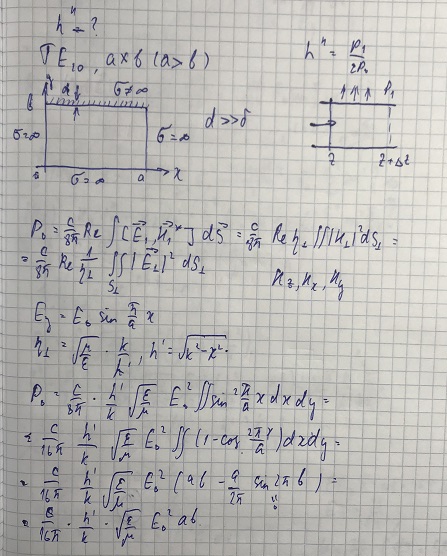 h" = ?
TE₁₀, a×b (a>b)
h" = P₁/2P₀
b d σ≠∞ P₁
σ=∞ σ=∞ d>>δ
0 σ=∞ a x
z z+Δz
P₀ = c/8π Re ∫[E⃗₁, H⃗₁*] dS⃗ = c/8π Re η⊥ ∬|H⊥|² dS⊥ =
= c/8π Re 1/η⊥ ∬_{S⊥} |E⃗⊥|² dS⊥
H_z, H_x, H_y
E_y = E₀ sin π/a x
η⊥ = √(μ/ε) · k/h', h' = √(k²-x²)
P₀ = c/8π · h'/k √(ε/μ) E₀² ∬ sin² π/a x dx dy =
= c/16π h'/k √(ε/μ) E₀² ∬ (1 - cos 2π/a x) dx dy =
= c/16π h'/k √(ε/μ) E₀² (ab - a/2π sin 2π b) =
= c/16π · h'/k · √(ε/μ) E₀² ab